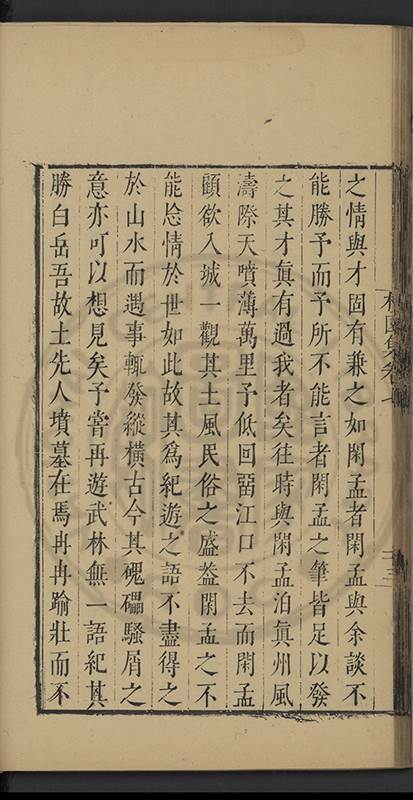 之情與才固有兼之如閑孟者閑孟與余談不
能勝予而予所不能言者閑孟之筆皆足以發
之其才眞有過我者矣往時與閑孟泊眞州風
濤際天噴薄萬里予低回畱江口不去而閑孟
顧欲入城一觀其土風民俗之盛葢閑孟之不
能忘情於世如此故其爲紀遊之語不盡得之
於山水而遇事輒發縱橫古今其磈礧騷屑之
意亦可以想見矣予嘗再遊武林無一語紀其
勝白岳吾故土先人墳墓在焉冉冉踰壯而不